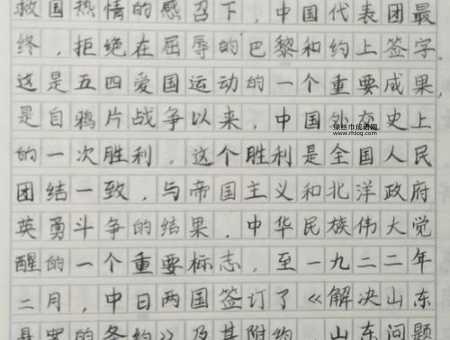 救国热情的感召下，中国代表团最
终，拒绝在屈辱的巴黎和约上签字。
这是五四爱国运动的一个重要成果，
是自鸦片战争以来，中国外交史上
的一次胜利，这个胜利是全国人民
团结一致，与帝国主义和北洋政府
英勇斗争的结果，中华民族伟大觉
醒的一个重要标志，至一九二二年
二月，中日两国签订了《解决山东
悬案的条约》及其附约，山东问题